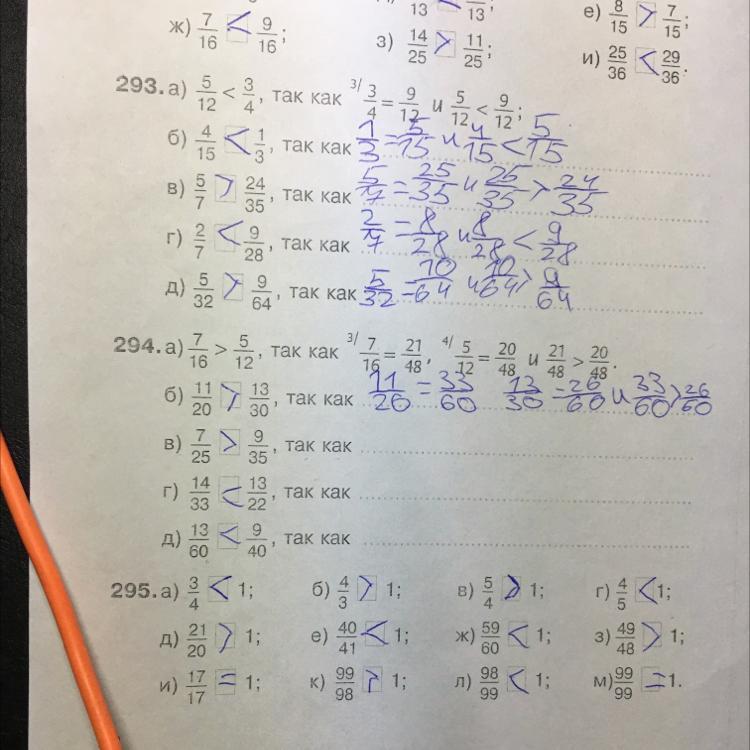 13 < 13;
ж) 7/16 < 9/16; з) 14/25 > 11/25; е) 8/15 > 7/15;
и) 25/36 < 29/36.
293. а) 5/12 < 3/4, так как 3/ 3/4 = 9/12 и 5/12 < 9/12;
б) 4/15 < 1/3, так как 1/3 = 5/15 и 4/15 < 5/15
в) 5/7 > 24/35, так как 5/7 = 25/35 и 25/35 > 24/35
г) 2/7 < 9/28, так как 2/7 = 8/28 и 8/28 < 9/28
д) 5/32 > 9/64, так как 5/32 = 10/64 и 10/64 > 9/64
294. а) 7/16 > 5/12, так как 3/ 7/16 = 21/48, 4/ 5/12 = 20/48 и 21/48 > 20/48.
б) 11/20 > 13/30, так как 11/20 = 33/60 13/30 = 26/60 и 33/60 > 26/60
в) 7/25 > 9/35, так как
г) 14/33 < 13/22, так как
д) 13/60 < 9/40, так как
295. а) 3/4 < 1; б) 4/3 > 1; в) 5/4 > 1; г) 4/5 < 1;
д) 21/20 > 1; е) 40/41 < 1; ж) 59/60 < 1; з) 49/48 > 1;
и) 17/17 = 1; к) 99/98 > 1; л) 98/99 < 1; м) 99/99 = 1.